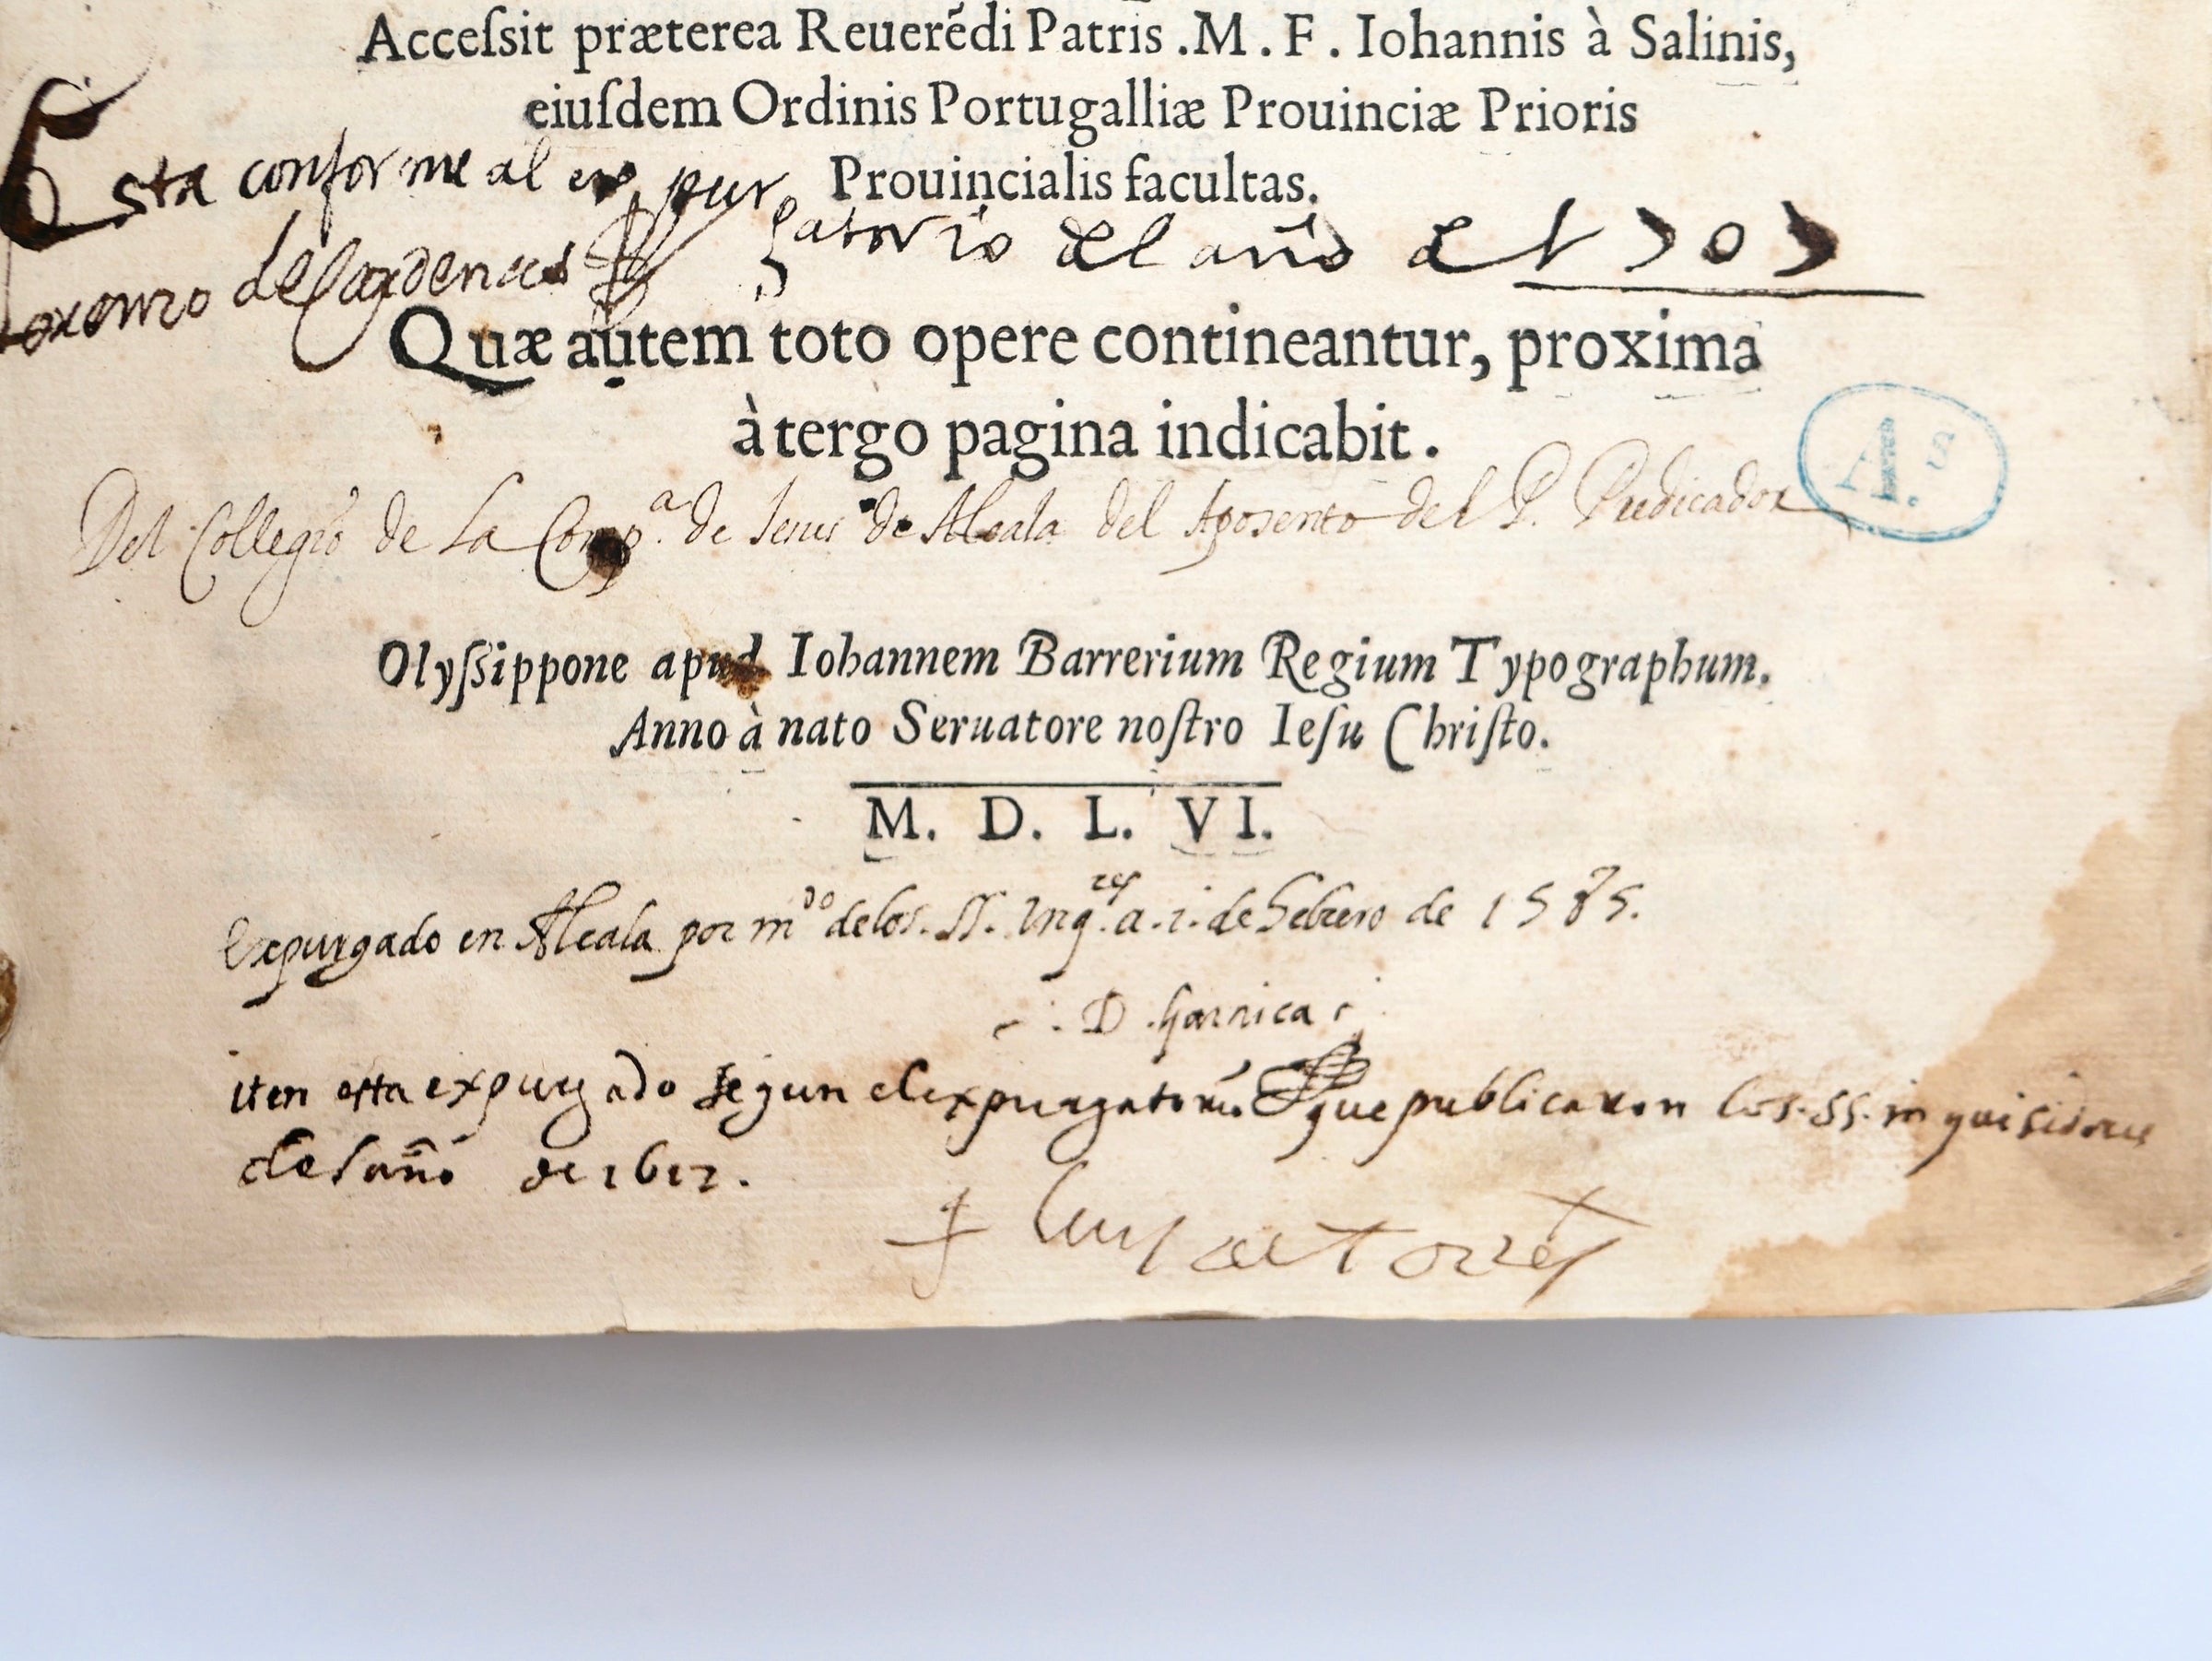 Acceſsit præterea Reuerẽdi Patris .M. F. Iohannis à Salinis,
eiuſdem Ordinis Portugalliæ Prouinciæ Prioris
Prouincialis facultas.
Esta conforme al expurgatorio del año de 1707
de Cardenas
Quæ autem toto opere contineantur, proxima
à tergo pagina indicabit.
A.s
Del Collegio de La Comp.a de Jesus de Alcala del Aposento del P. Predicador
Olyſsippone apud Iohannem Barrerium Regium Typographum.
Anno à nato Seruatore noſtro Ieſu Chriſto.
M. D. L. VI.
Expurgado en Alcala por mdo delos. SS. Inq.res a .1. de Febrero de 1585.
D. Garnica
iten esta expurgado segun el expurgatorio que publicaron los. ss. inquisidores
del año de 1612.
Luys de Torres